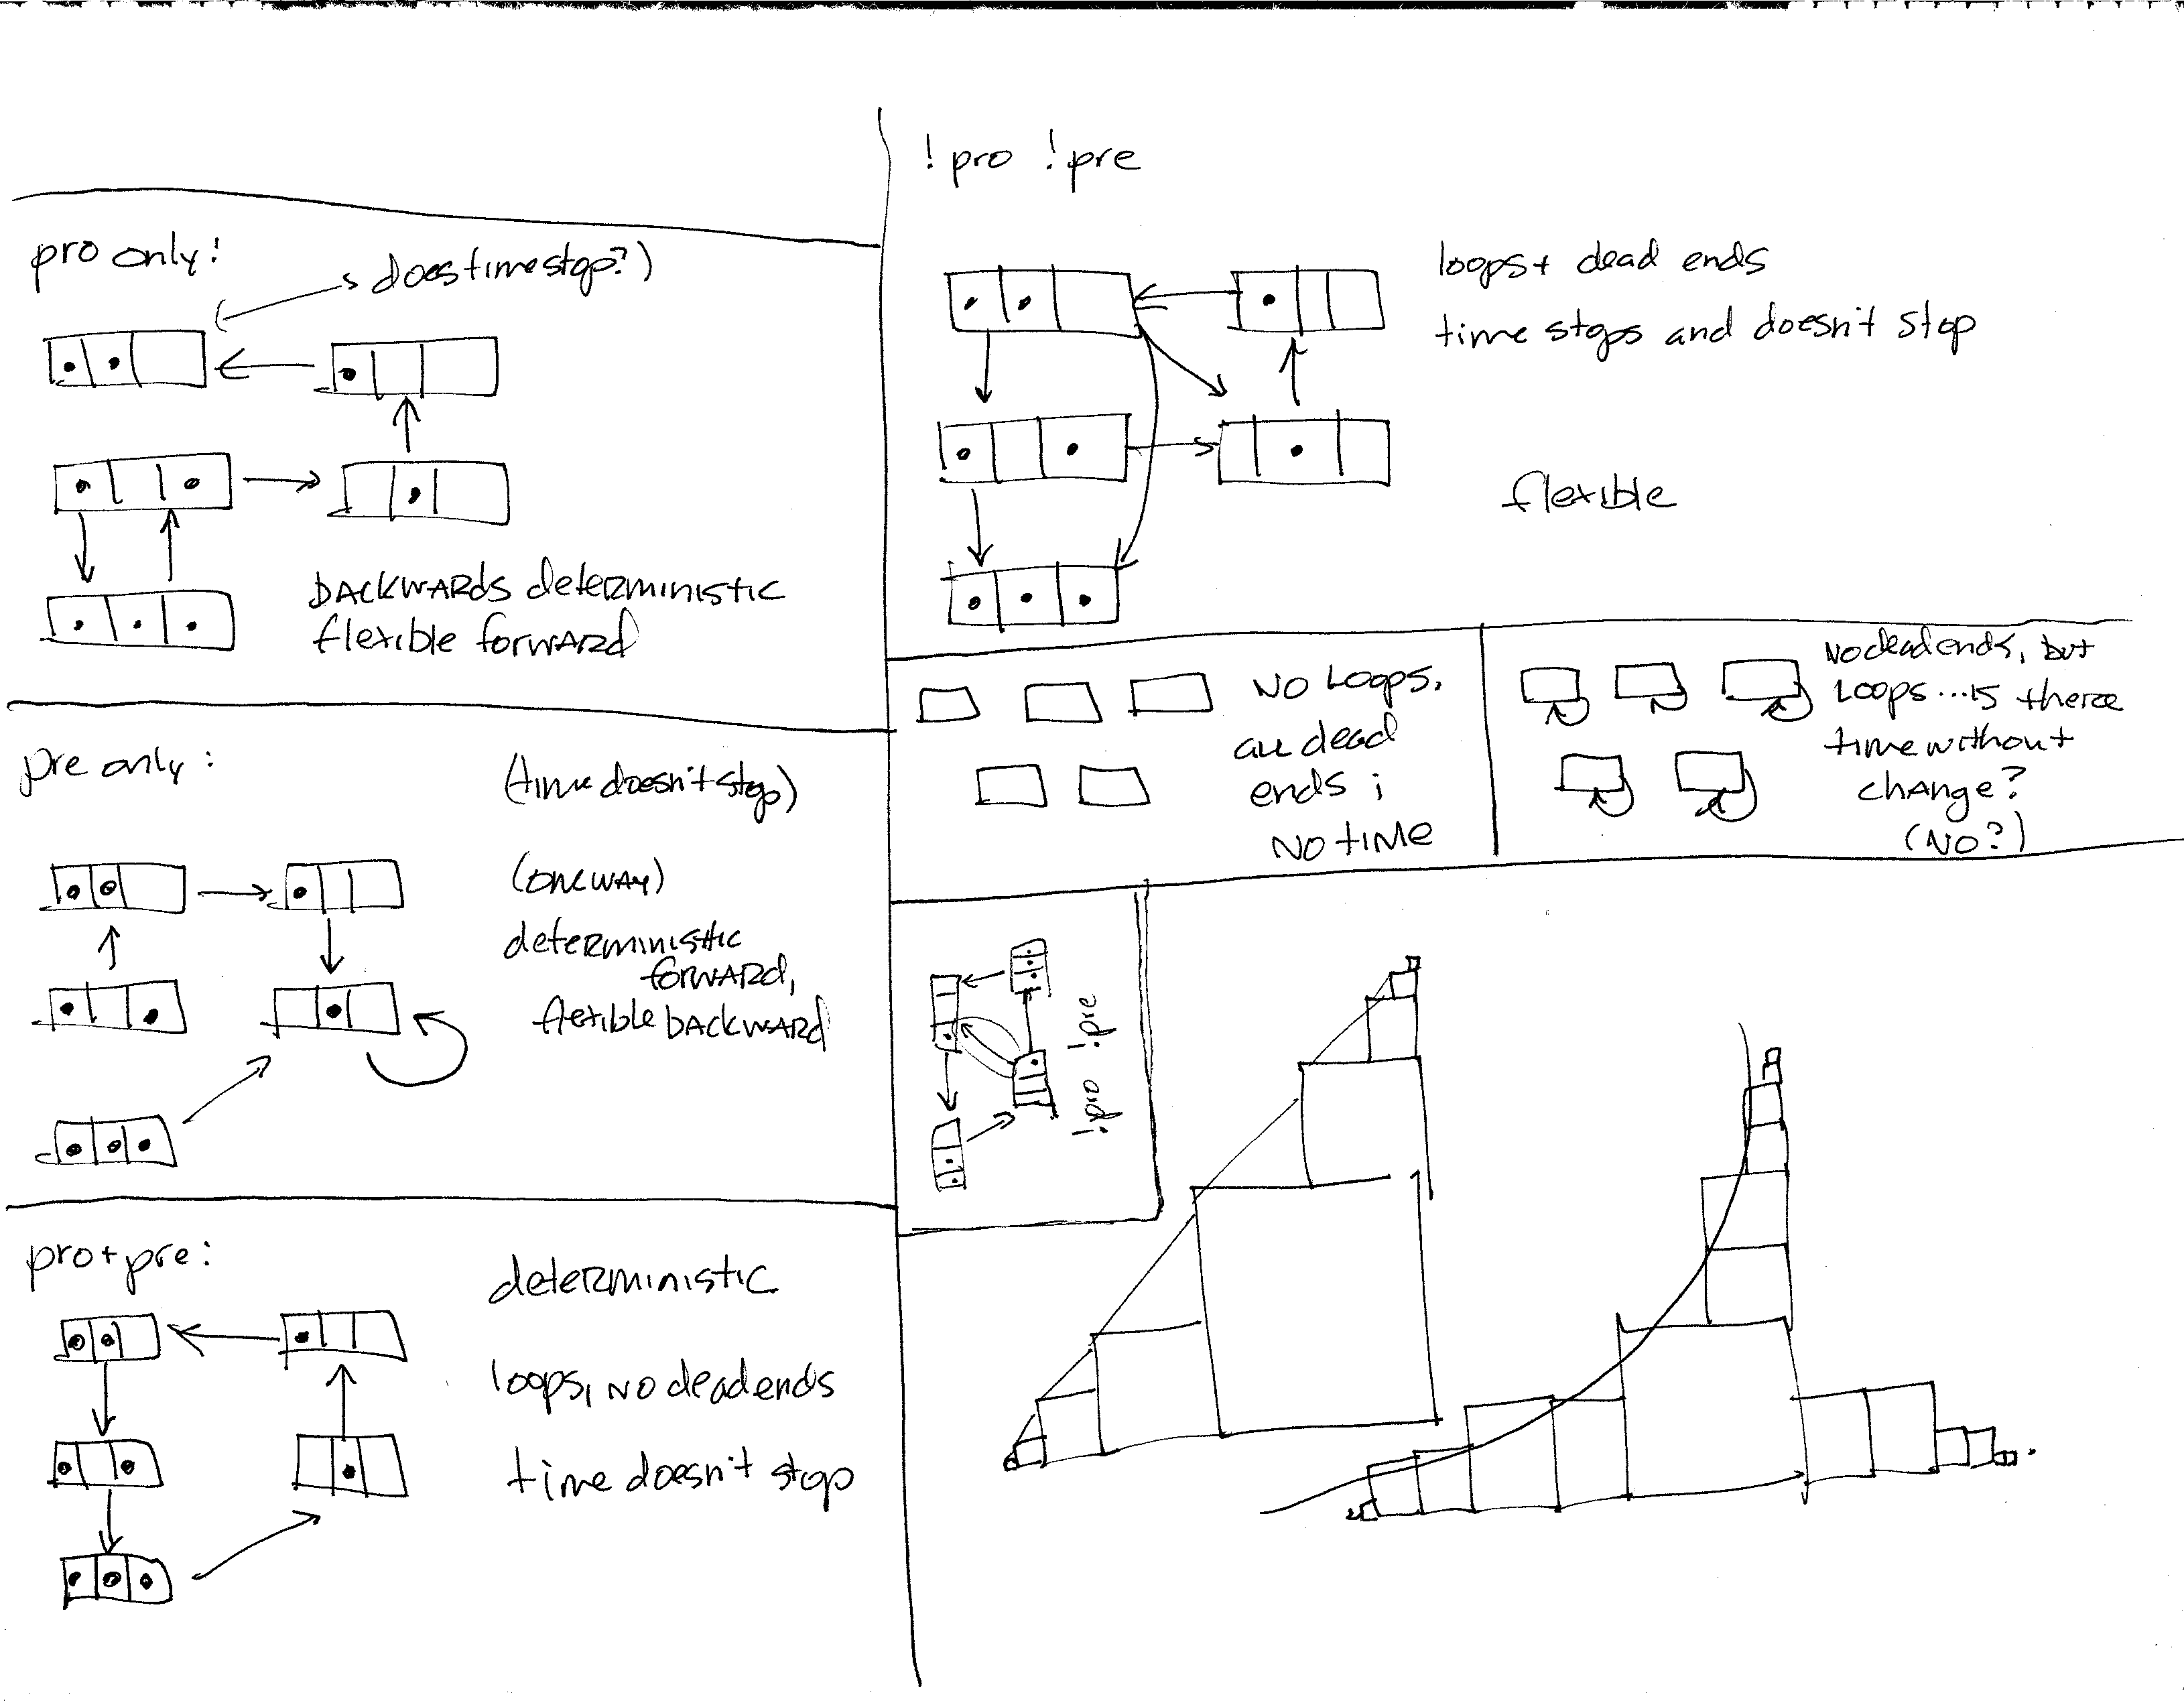 pro only:
does time stop?)
BACKWARDS deterministic
flexible forward
pre only:
(time doesn't stop)
(one way)
deterministic
forward,
flexible backward
pro + pre:
deterministic
loops, no dead ends
time doesn't stop
!pro !pre
loops + dead ends
time stops and doesn't stop
flexible
NO LOOPS,
all dead
ends ;
NO TIME
No dead ends, but
Loops ... is there
time without
change?
(NO?)
!pro !pre